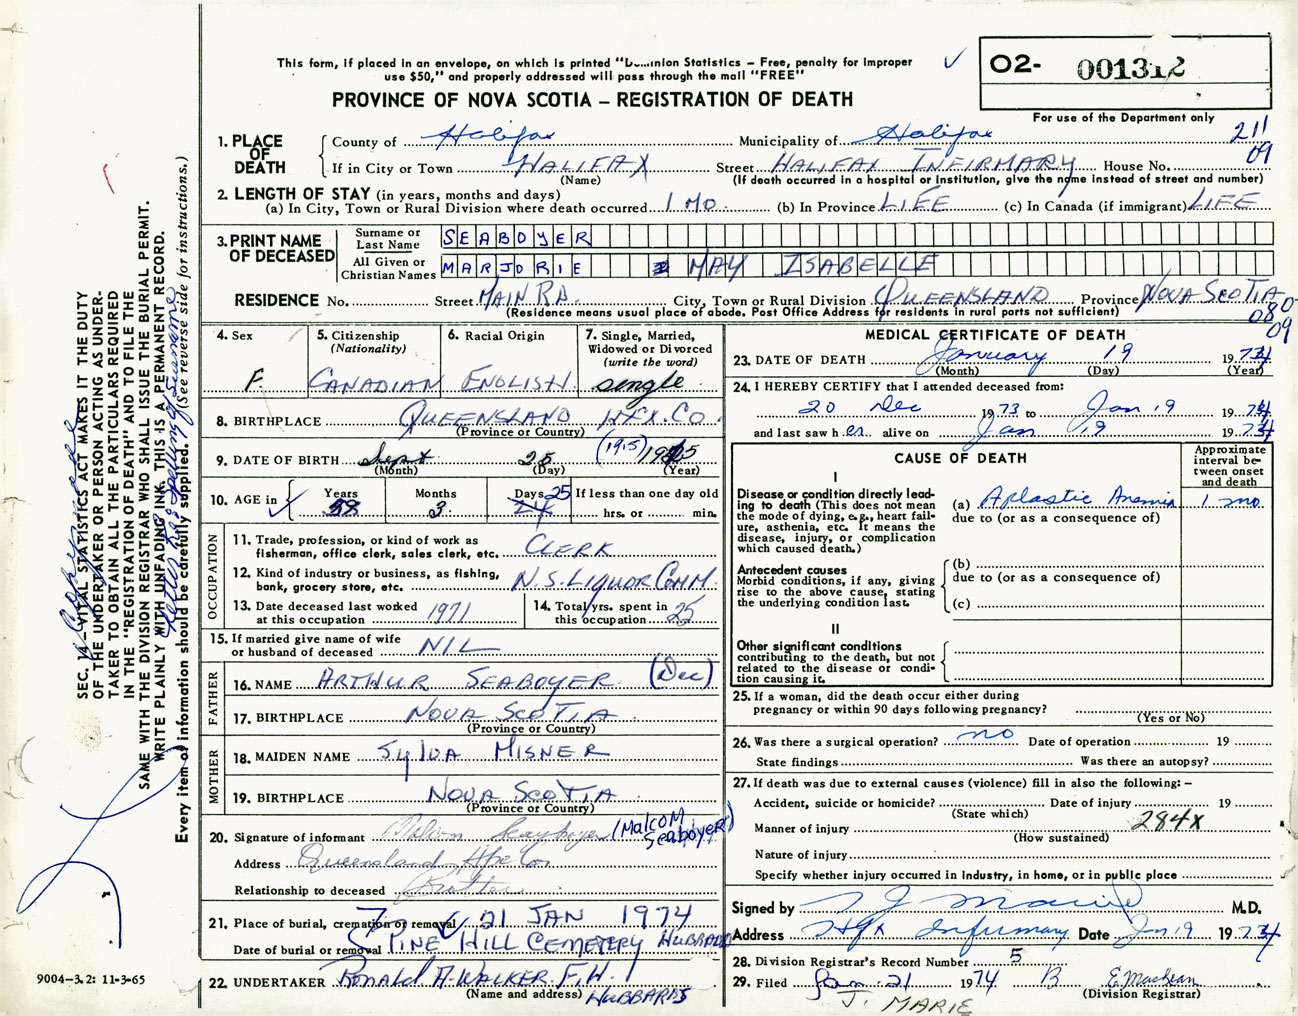 This form, if placed in an envelope, on which is printed "Dominion Statistics – Free, penalty for improper
use $50," and properly addressed will pass through the mail "FREE"
PROVINCE OF NOVA SCOTIA – REGISTRATION OF DEATH
O2- 001312
For use of the Department only
211
09
1. PLACE OF DEATH
County of Halifax Municipality of Halifax
If in City or Town HALIFAX Street HALIFAX INFIRMARY House No.
(Name) (If death occurred in a hospital or institution, give the name instead of street and number)
2. LENGTH OF STAY (in years, months and days)
(a) In City, Town or Rural Division where death occurred 1 MO. (b) In Province LIFE (c) In Canada (if immigrant) LIFE
3. PRINT NAME OF DECEASED
Surname or Last Name SEABOYER
All Given or Christian Names MARJORIE MAY ISABELLE
RESIDENCE No. Street MAIN RD. City, Town or Rural Division QUEENSLAND Province NOVA SCOTIA
(Residence means usual place of abode. Post Office Address for residents in rural parts not sufficient)
08
09
4. Sex F.
5. Citizenship (Nationality) CANADIAN
6. Racial Origin ENGLISH
7. Single, Married, Widowed or Divorced (write the word) single
8. BIRTHPLACE QUEENSLAND HFX. CO.
(Province or Country)
9. DATE OF BIRTH Sept 25 (1915) 1915
(Month) (Day) (Year)
10. AGE in Years 58 Months 3 Days 24 25 If less than one day old
hrs. or min.
OCCUPATION
11. Trade, profession, or kind of work as fisherman, office clerk, sales clerk, etc. CLERK
12. Kind of industry or business, as fishing, bank, grocery store, etc. N.S. LIQUOR COMM.
13. Date deceased last worked at this occupation 1971
14. Total yrs. spent in this occupation 25
15. If married give name of wife or husband of deceased NIL
FATHER
16. NAME ARTHUR SEABOYER (Dec)
17. BIRTHPLACE NOVA SCOTIA
(Province or Country)
MOTHER
18. MAIDEN NAME SYLVA MISNER
19. BIRTHPLACE NOVA SCOTIA
(Province or Country)
20. Signature of informant Seaboyer (MALCOM Seaboyer)
Address Queensland Hfx Co
Relationship to deceased Brother
21. Place of burial, cremation or removal 21 JAN 1974
Date of burial or removal PINE HILL CEMETERY HUBBARDS
22. UNDERTAKER RONALD A. WALKER F.H.
(Name and address) HUBBARDS
MEDICAL CERTIFICATE OF DEATH
23. DATE OF DEATH January 19 1974
(Month) (Day) (Year)
24. I HEREBY CERTIFY that I attended deceased from:
20 Dec 1973 to Jan 19 1974
and last saw her alive on Jan 19 1974
CAUSE OF DEATH
Approximate interval between onset and death
I
Disease or condition directly leading to death (This does not mean the mode of dying, e.g., heart failure, asthenia, etc. It means the disease, injury, or complication which caused death.)
(a) Aplastic Anemia 1 mo
due to (or as a consequence of)
Antecedent causes
Morbid conditions, if any, giving rise to the above cause, stating the underlying condition last.
(b)
due to (or as a consequence of)
(c)
II
Other significant conditions
contributing to the death, but not related to the disease or condition causing it.
25. If a woman, did the death occur either during
pregnancy or within 90 days following pregnancy?
(Yes or No)
26. Was there a surgical operation? no Date of operation 19
State findings Was there an autopsy?
27. If death was due to external causes (violence) fill in also the following: –
Accident, suicide or homicide? Date of injury 19
(State which)
Manner of injury 284x
(How sustained)
Nature of injury
Specify whether injury occurred in industry, in home, or in public place
Signed by M.D.
Address Hfx Infirmary Date Jan 19 1974
28. Division Registrar's Record Number 5
29. Filed Jan. 21 1974 B E. MacLean
(Division Registrar)
J. MARIE
SEC. 14 – VITAL STATISTICS ACT MAKES IT THE DUTY
OF THE UNDERTAKER OR PERSON ACTING AS UNDER-
TAKER TO OBTAIN ALL THE PARTICULARS REQUIRED
IN THE "REGISTRATION OF DEATH" AND TO FILE THE
SAME WITH THE DIVISION REGISTRAR WHO SHALL ISSUE THE BURIAL PERMIT.
WRITE PLAINLY WITH UNFADING INK. THIS IS A PERMANENT RECORD.
Every item of information should be carefully supplied. (See reverse side for instructions.)
spelling of Surname
9004–3.2: 11-3-65